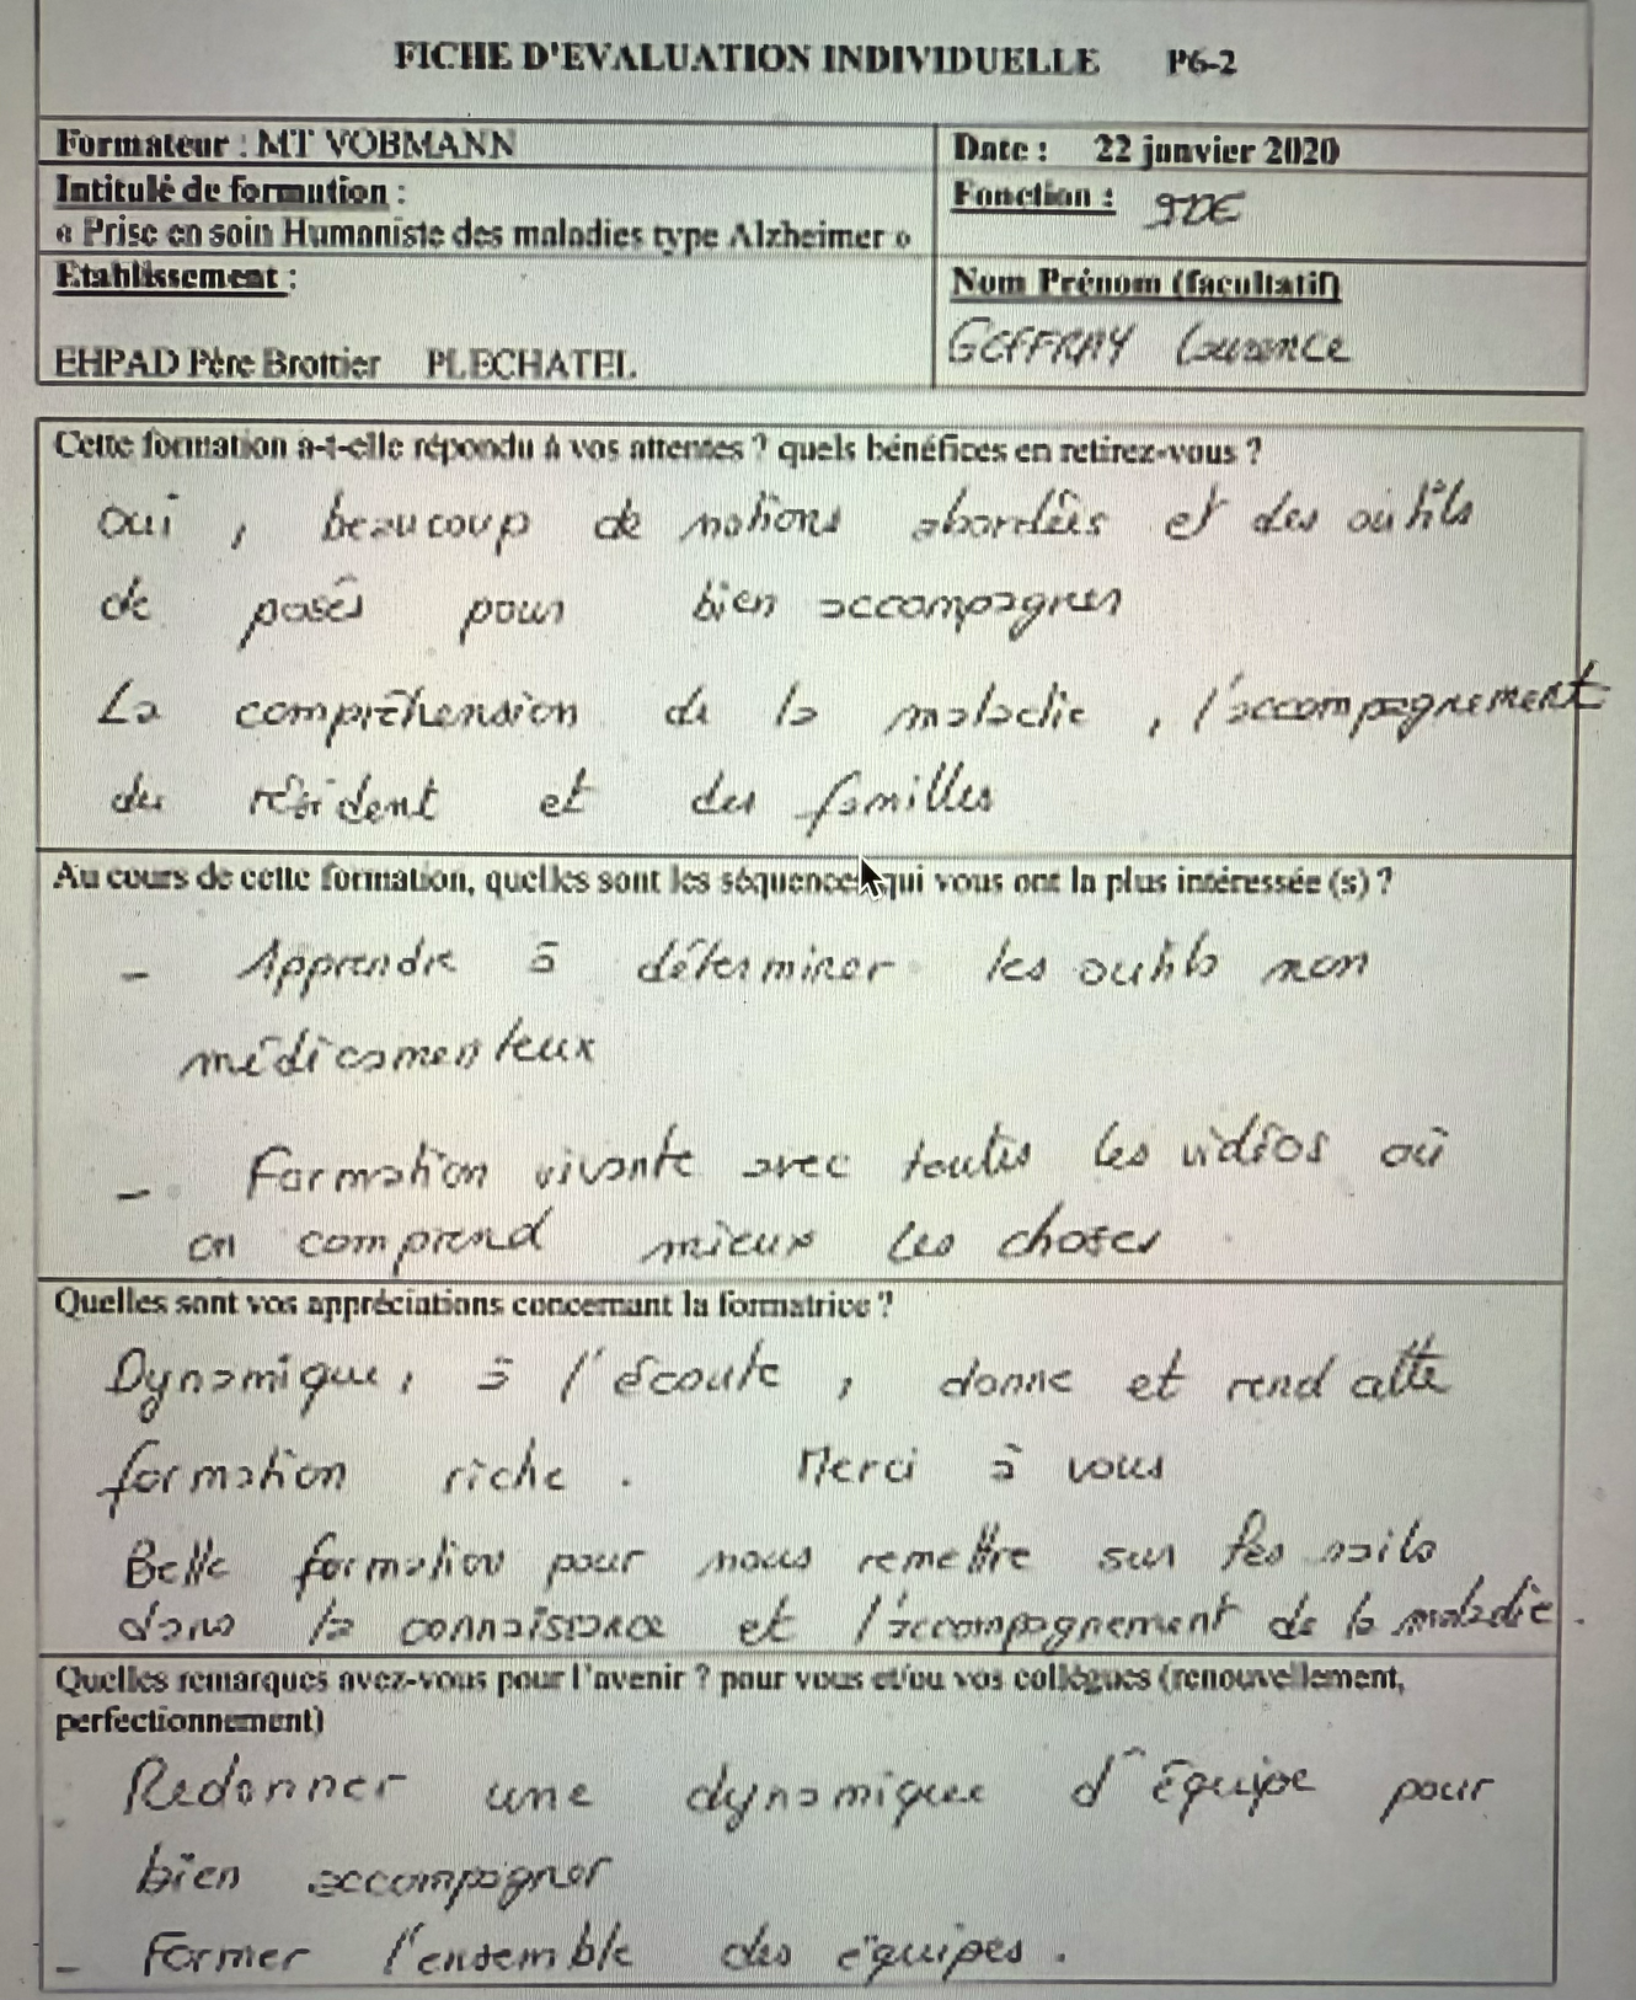 FICHE D'EVALUATION INDIVIDUELLE P6-2
Formateur : MT VOBMANN
Date : 22 janvier 2020
Intitulé de formation :
« Prise en soin Humaniste des maladies type Alzheimer »
Fonction : IDE
Etablissement :
EHPAD Père Brottier PLECHATEL
Nom Prénom (facultatif)
GEFFRAY Laurence
Cette formation a-t-elle répondu à vos attentes ? quels bénéfices en retirez-vous ?
Oui, beaucoup de notions abordées et des outils
de posés pour bien accompagner
La compréhension de la maladie, l'accompagnement
du résident et des familles
Au cours de cette formation, quelles sont les séquences qui vous ont la plus intéressée (s) ?
- Apprendre à déterminer les outils non
médicamenteux
- Formation vivante avec toutes les vidéos où
on comprend mieux les choses
Quelles sont vos appréciations concernant la formatrice ?
Dynamique, à l'écoute, donne et rend cette
formation riche. Merci à vous
Belle formation pour nous remettre sur les rails
dans la connaissance et l'accompagnement de la maladie.
Quelles remarques avez-vous pour l'avenir ? pour vous et/ou vos collègues (renouvellement,
perfectionnement)
- Redonner une dynamique d'équipe pour
bien accompagner
- Former l'ensemble des équipes.